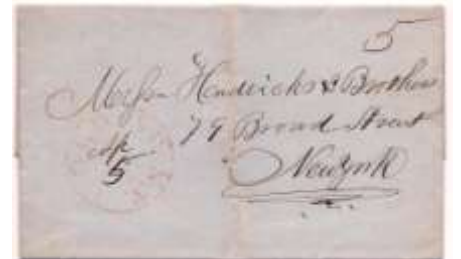 5
Messrs Hendricks & Brothers
79 Broad Street
New York
5